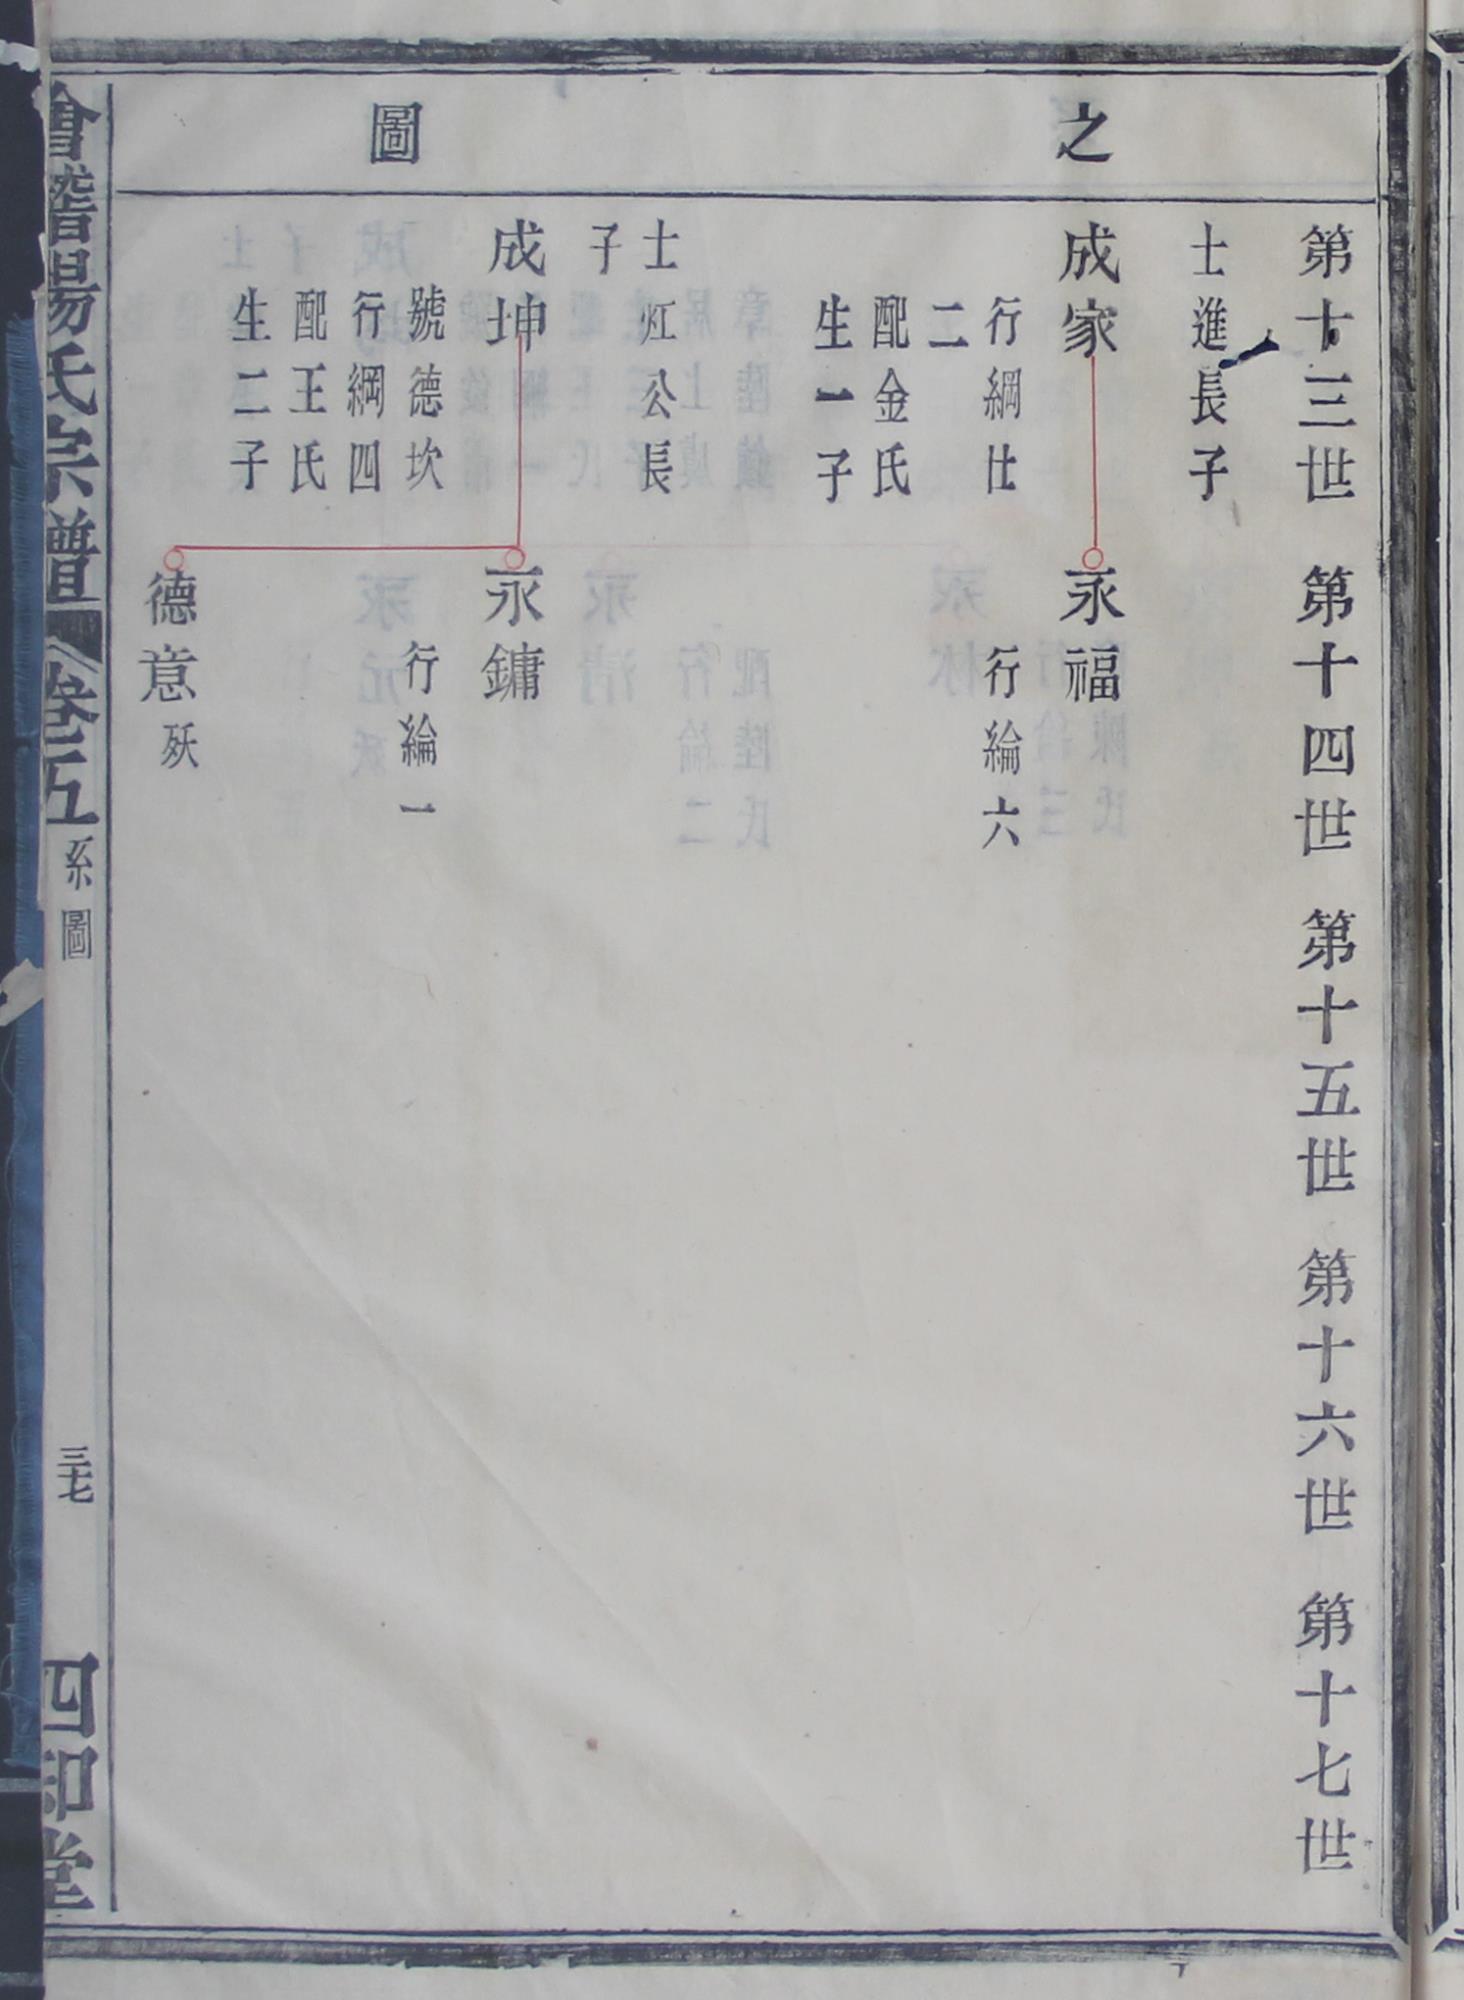 之圖
第十三世 第十四世 第十五世 第十六世 第十七世
士進長子
成家 永福
行綱仕 行綸六
二
配金氏
生一子
士灴公長
子
成坤 永鏞
號德坎 行綸一
行綱四
配王氏
生二子
德意 殀
會稽楊氏宗譜 卷五 系圖 三十七 四印堂